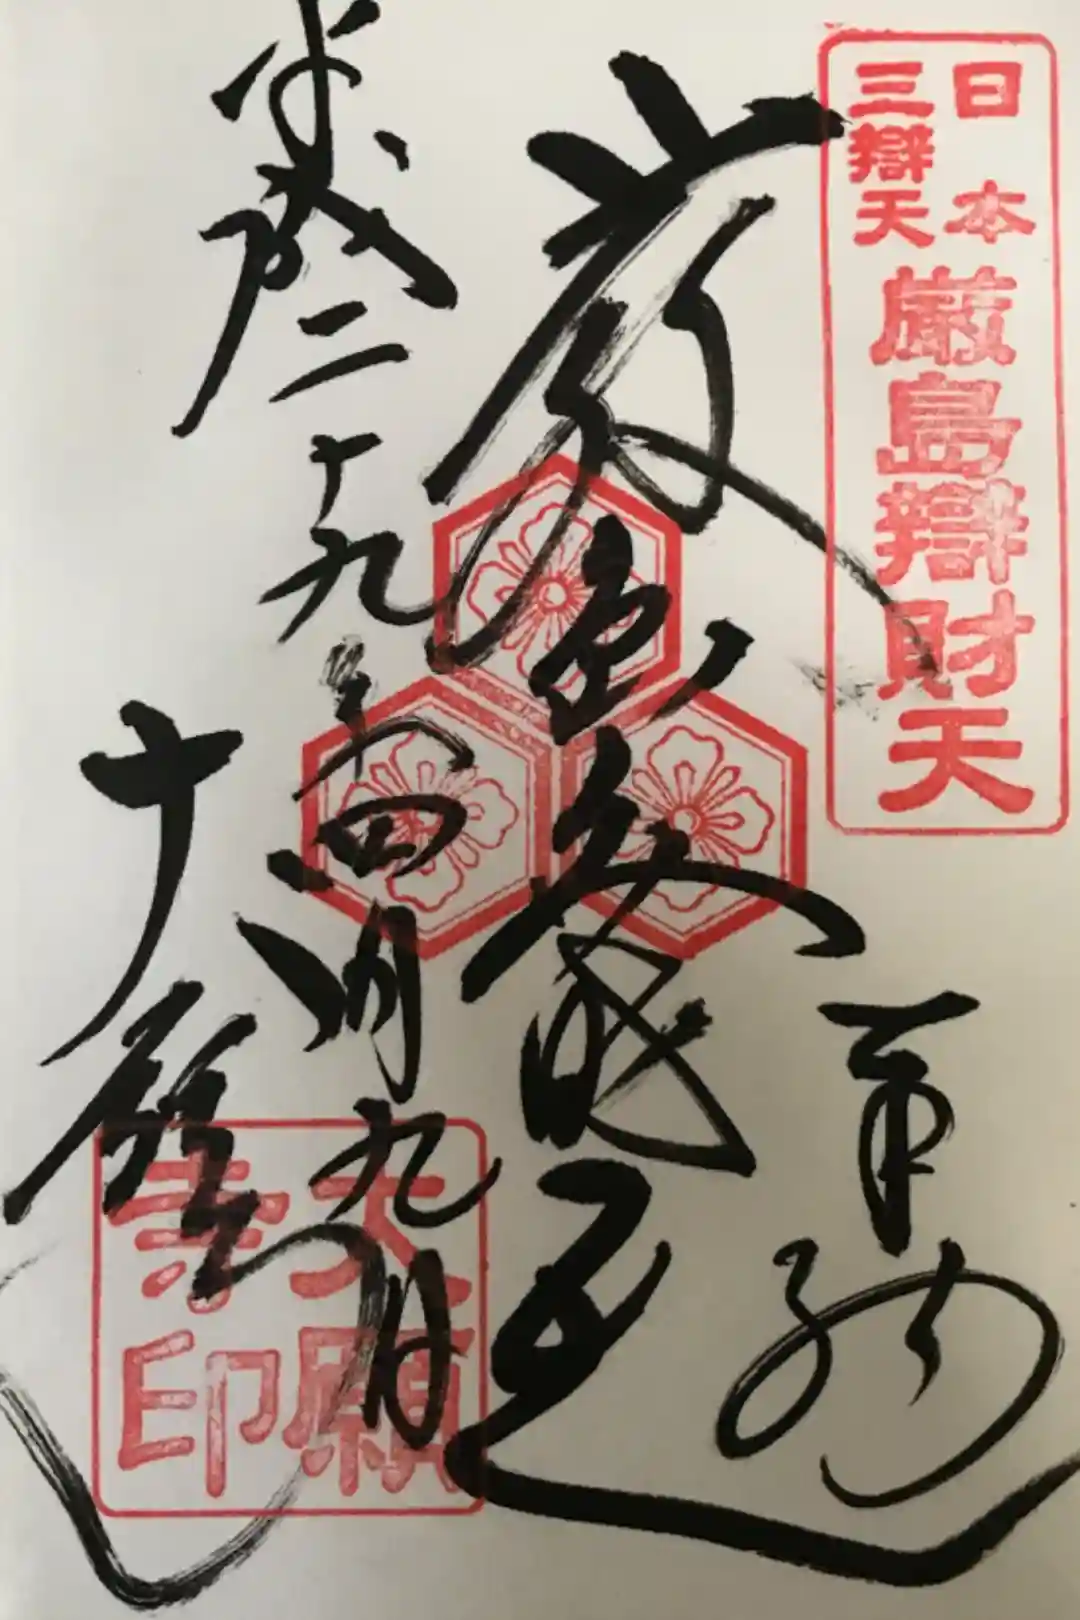 日本
三辯天
厳島辯財天
奉拝
厳島弁财天
平成二十九年四月九日
大願
寺印
大願寺